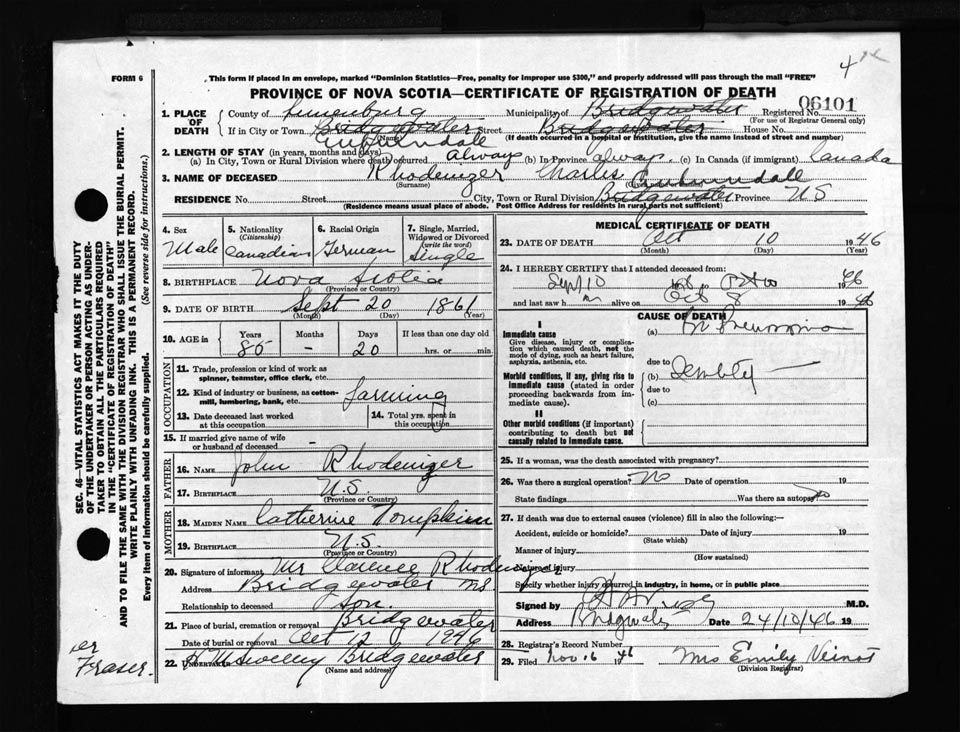 4
FORM 6
This form if placed in an envelope, marked "Dominion Statistics—Free, penalty for improper use $300," and properly addressed will pass through the mail "FREE"
PROVINCE OF NOVA SCOTIA—CERTIFICATE OF REGISTRATION OF DEATH
06101
1. PLACE OF DEATH
County of Lunenburg Municipality of Bridgewater Registered No.
(For use of Registrar General only)
If in City or Town Bridgewater Street Bridgewater House No.
(Name) (If death occurred in a hospital or institution, give the name instead of street and number)
2. LENGTH OF STAY (in years, months and days)
(a) In City, Town or Rural Division where death occurred always (b) In Province always (c) In Canada (if immigrant) Canada
3. NAME OF DECEASED Rhodenizer Charles
(Surname)
RESIDENCE No. Street City, Town or Rural Division Bridgewater Province N.S
(Residence means usual place of abode. Post Office Address for residents in rural parts not sufficient)
4. Sex
Male
5. Nationality
(Citizenship)
Canadian
6. Racial Origin
German
7. Single, Married, Widowed or Divorced
(write the word)
Single
8. BIRTHPLACE Nova Scotia
(Province or Country)
9. DATE OF BIRTH Sept 20 1861
(Month) (Day) (Year)
10. AGE in
Years Months Days If less than one day old
85 - 20 hrs. or min.
OCCUPATION
11. Trade, profession or kind of work as spinner, teamster, office clerk, etc.
12. Kind of industry or business, as cotton-mill, lumbering, bank, etc. farming
13. Date deceased last worked at this occupation
14. Total yrs. spent in this occupation
15. If married give name of wife or husband of deceased -
FATHER
16. NAME John Rhodenizer
17. BIRTHPLACE N.S.
(Province or Country)
MOTHER
18. MAIDEN NAME Catherine Tompkins
19. BIRTHPLACE N.S.
(Province or Country)
20. Signature of informant Mr Clarence Rhodenizer
Address Bridgewater NS.
Relationship to deceased Son.
21. Place of burial, cremation or removal Bridgewater
Date of burial or removal Oct 12 1946
22. UNDERTAKER Sweeny Bridgewater
(Name and address)
MEDICAL CERTIFICATE OF DEATH
23. DATE OF DEATH Oct 10 1946
(Month) (Day) (Year)
24. I HEREBY CERTIFY that I attended deceased from:
Sept 10 to Oct 10 1946
and last saw h m alive on Oct 8 1946
CAUSE OF DEATH
I
Immediate cause
Give disease, injury or complication which caused death, not the mode of dying, such as heart failure, asphyxia, asthenia, etc.
(a) Br Pneumonia
due to
Morbid conditions, if any, giving rise to immediate cause (stated in order proceeding backwards from immediate cause).
(b) Senility
due to
(c)
II
Other morbid conditions (if important) contributing to death but not causally related to immediate cause.
25. If a woman, was the death associated with pregnancy?
26. Was there a surgical operation? No Date of operation 19
State findings Was there an autopsy? no
27. If death was due to external causes (violence) fill in also the following:—
Accident, suicide or homicide? Date of injury 19
(State which)
Manner of injury
(How sustained)
Nature of injury
Specify whether injury occurred in industry, in home, or in public place
Signed by M.D.
Address Bridgewater Date 24/10/46 19
28. Registrar's Record Number
29. Filed Nov. 16 1946 Mrs Emily Veinot
(Division Registrar)
SEC. 46—VITAL STATISTICS ACT MAKES IT THE DUTY
OF THE UNDERTAKER OR PERSON ACTING AS UNDERTAKER TO OBTAIN ALL THE PARTICULARS REQUIRED
IN THE "CERTIFICATE OF REGISTRATION OF DEATH"
AND TO FILE THE SAME WITH THE DIVISION REGISTRAR WHO SHALL ISSUE THE BURIAL PERMIT.
WRITE PLAINLY WITH UNFADING INK. THIS IS A PERMANENT RECORD.
Every item of information should be carefully supplied. (See reverse side for instructions.)
Fraser.